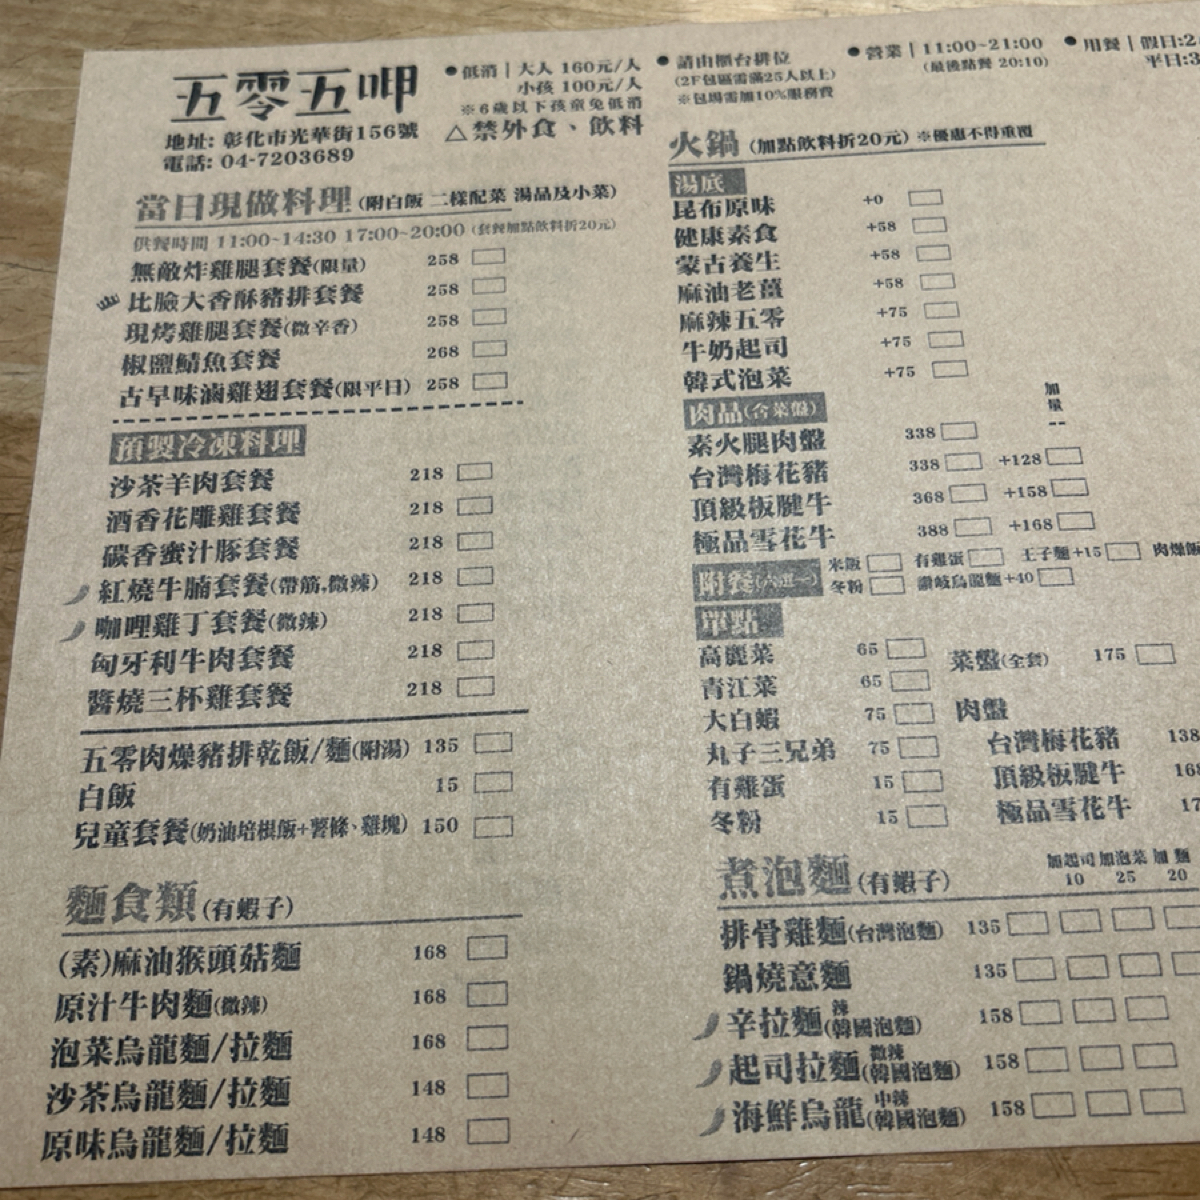 五零五呷
地址: 彰化市光華街156號
電話: 04-7203689
●低消｜大人 160元/人
小孩 100元/人
※6歲以下孩童免低消
△禁外食、飲料
●請由櫃台排位
(2F包區需滿25人以上)
※包場需加10%服務費
●營業｜11:00~21:00
(最後點餐 20:10)
●用餐｜假日:2
平日:3
當日現做料理(附白飯 二樣配菜 湯品及小菜)
供餐時間 11:00~14:30 17:00~20:00 (套餐加點飲料折20元)
無敵炸雞腿套餐(限量) 258
比臉大香酥豬排套餐 258
現烤雞腿套餐(微辛香) 258
椒鹽鯖魚套餐 268
古早味滷雞翅套餐(限平日) 258
預製冷凍料理
沙茶羊肉套餐 218
酒香花雕雞套餐 218
碳香蜜汁豚套餐 218
紅燒牛腩套餐(帶筋,微辣) 218
咖哩雞丁套餐(微辣) 218
匈牙利牛肉套餐 218
醬燒三杯雞套餐 218
五零肉燥豬排乾飯/麵(附湯) 135
白飯 15
兒童套餐(奶油培根飯+薯條、雞塊) 150
麵食類(有蝦子)
(素)麻油猴頭菇麵 168
原汁牛肉麵(微辣) 168
泡菜烏龍麵/拉麵 168
沙茶烏龍麵/拉麵 148
原味烏龍麵/拉麵 148
火鍋(加點飲料折20元) ※優惠不得重覆
湯底
昆布原味 +0
健康素食 +58
蒙古養生 +58
麻油老薑 +58
麻辣五零 +75
牛奶起司 +75
韓式泡菜 +75
肉品(含菜盤) 加量
素火腿肉盤 338
台灣梅花豬 338 +128
頂級板腱牛 368 +158
極品雪花牛 388 +168
附餐(六選一) 米飯 有雞蛋 王子麵+15 肉燥飯
冬粉 讚岐烏龍麵+40
單點
高麗菜 65 菜盤(全套) 175
青江菜 65
大白蝦 75 肉盤
丸子三兄弟 75 台灣梅花豬 138
有雞蛋 15 頂級板腱牛 168
冬粉 15 極品雪花牛 17
煮泡麵(有蝦子) 加起司 10 加泡菜 25 加麵 20
排骨雞麵(台灣泡麵) 135
鍋燒意麵 135
辛拉麵 辣(韓國泡麵) 158
起司拉麵 微辣(韓國泡麵) 158
海鮮烏龍 中辣(韓國泡麵) 158